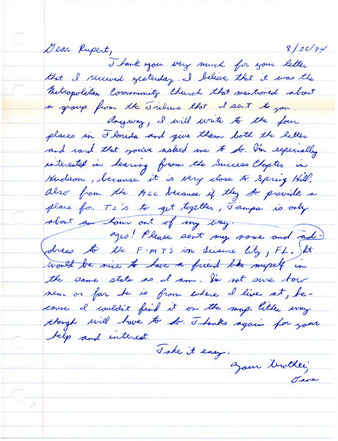 Dear Rupert, 8/20/94
Thank you very much for your letter
that I received yesterday. I believe that it was the
Metropolitan Community Church that mentioned about
a group from the Tribune that I sent to you
Anyway, I will write to the four
places in Florida and give them both the letter
and card that you've asked me to do. I'm especially
interested in hearing from the Success Chapter in
Hudson, because it is very close to Spring Hill.
Also from the MCC because if they do provide a
place for TS's to get together, Tampa is only
about an hour out of my way.
Yes! Please sent my name and ad-
dress to the F-M TS in Leisure City, FL. It
would be nice to have a friend like myself in
the same state as I am. I'm not sure how
near or far he is from where I live at, be-
cause I couldn't find it on the map. Letter
though will have to do. Thanks again for your
help and interest.
Take it easy.
Your brother,